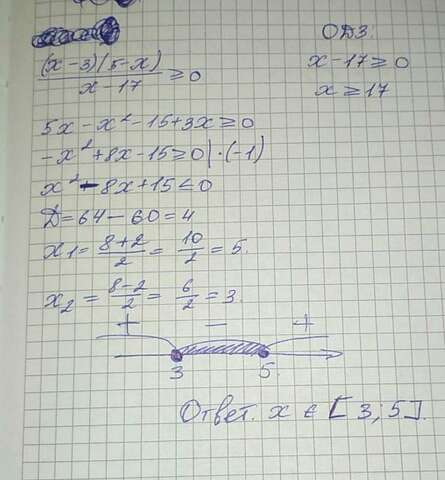 ОДЗ.
(x-3)(5-x)/x-17 ≥ 0
x-17 ≥ 0
x ≥ 17
5x - x² - 15 + 3x ≥ 0
-x² + 8x - 15 ≥ 0 | ·(-1)
x² - 8x + 15 ≤ 0
D = 64 - 60 = 4
x₁ = 8+2/2 = 10/2 = 5.
x₂ = 8-2/2 = 6/2 = 3.
+ - +
3 5.
Ответ. x ∈ [3; 5].